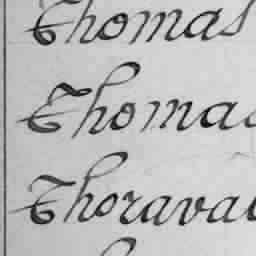 Thomas
Thomas
Thorava